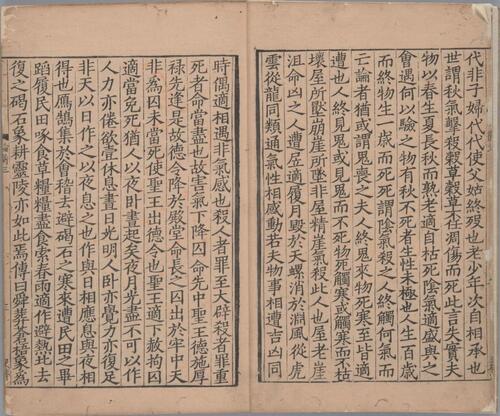 代非子婦代代使父姑終歿也老少年次自相承也
世謂秋氣擊殺穀草穀草不任凋傷而死此言失實夫
物以春生夏長秋而熟老適自枯死陰氣適盛與之
會遇何以驗之物有秋不死者生性未極也人生百歲
而終物生一歲而死死謂陰氣殺之人終觸何氣而
亡論者猶或謂鬼喪之夫人終鬼來物死寒至皆適
遭也人終見鬼或見鬼而不死物死觸寒或觸寒而不枯
壞屋所壓崩崖所墜非屋精崖氣殺此人也屋老崖
沮命凶之人遭居適履月毀於天螺消於淵風從虎
雲從龍同類通氣性相感動若夫物事相遭吉凶同
時偶適相遇非氣感也殺人者罪至大辟殺者罪重
死者命當盡也故害氣下降囚命先中聖王德施厚
祿先逢是故德令降於殿堂命長之囚出於牢中天
非為囚未當死使聖王出德令也聖王適下赦拘囚
適當免死猶人以夜卧晝起矣夜月光盡不可以作
人力亦倦欲壹休息晝日光明人卧亦覺力亦復足
非天以日作之以夜息之也作與日相應息與夜相
得也鴈鵠集於會稽去避碣石之寒來遭民田之畢
蹈履民田啄食草糧糧盡食索春雨適作避熱北去
復之碣石象耕靈陵亦如此焉傳曰舜葬蒼梧象為